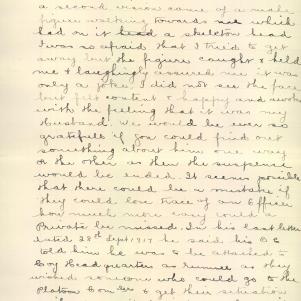 a second vision came of a male
figure walking towards me which
had on it head a skeleton head
I was so afraid that I tried to get
away but the figure caught & held
me & laughingly assured me it was
only a joke. I did not see the face
but felt content & happy and awoke
with the feeling that it was my
Husband. We would be ever so
grateful if you could find out
something about him one way
or the other as then the suspense
would be ended. It seems possible
that there could be a mistake if
they could lose trace of an Officer
how much more easy could a
Private be missed. In his last letter
dated 28th Sept 1917 he said his O C
told him he was to be attached to
Coy Head quarters as runner as they
wished someone who could go to the
Platoon Com & get their situation